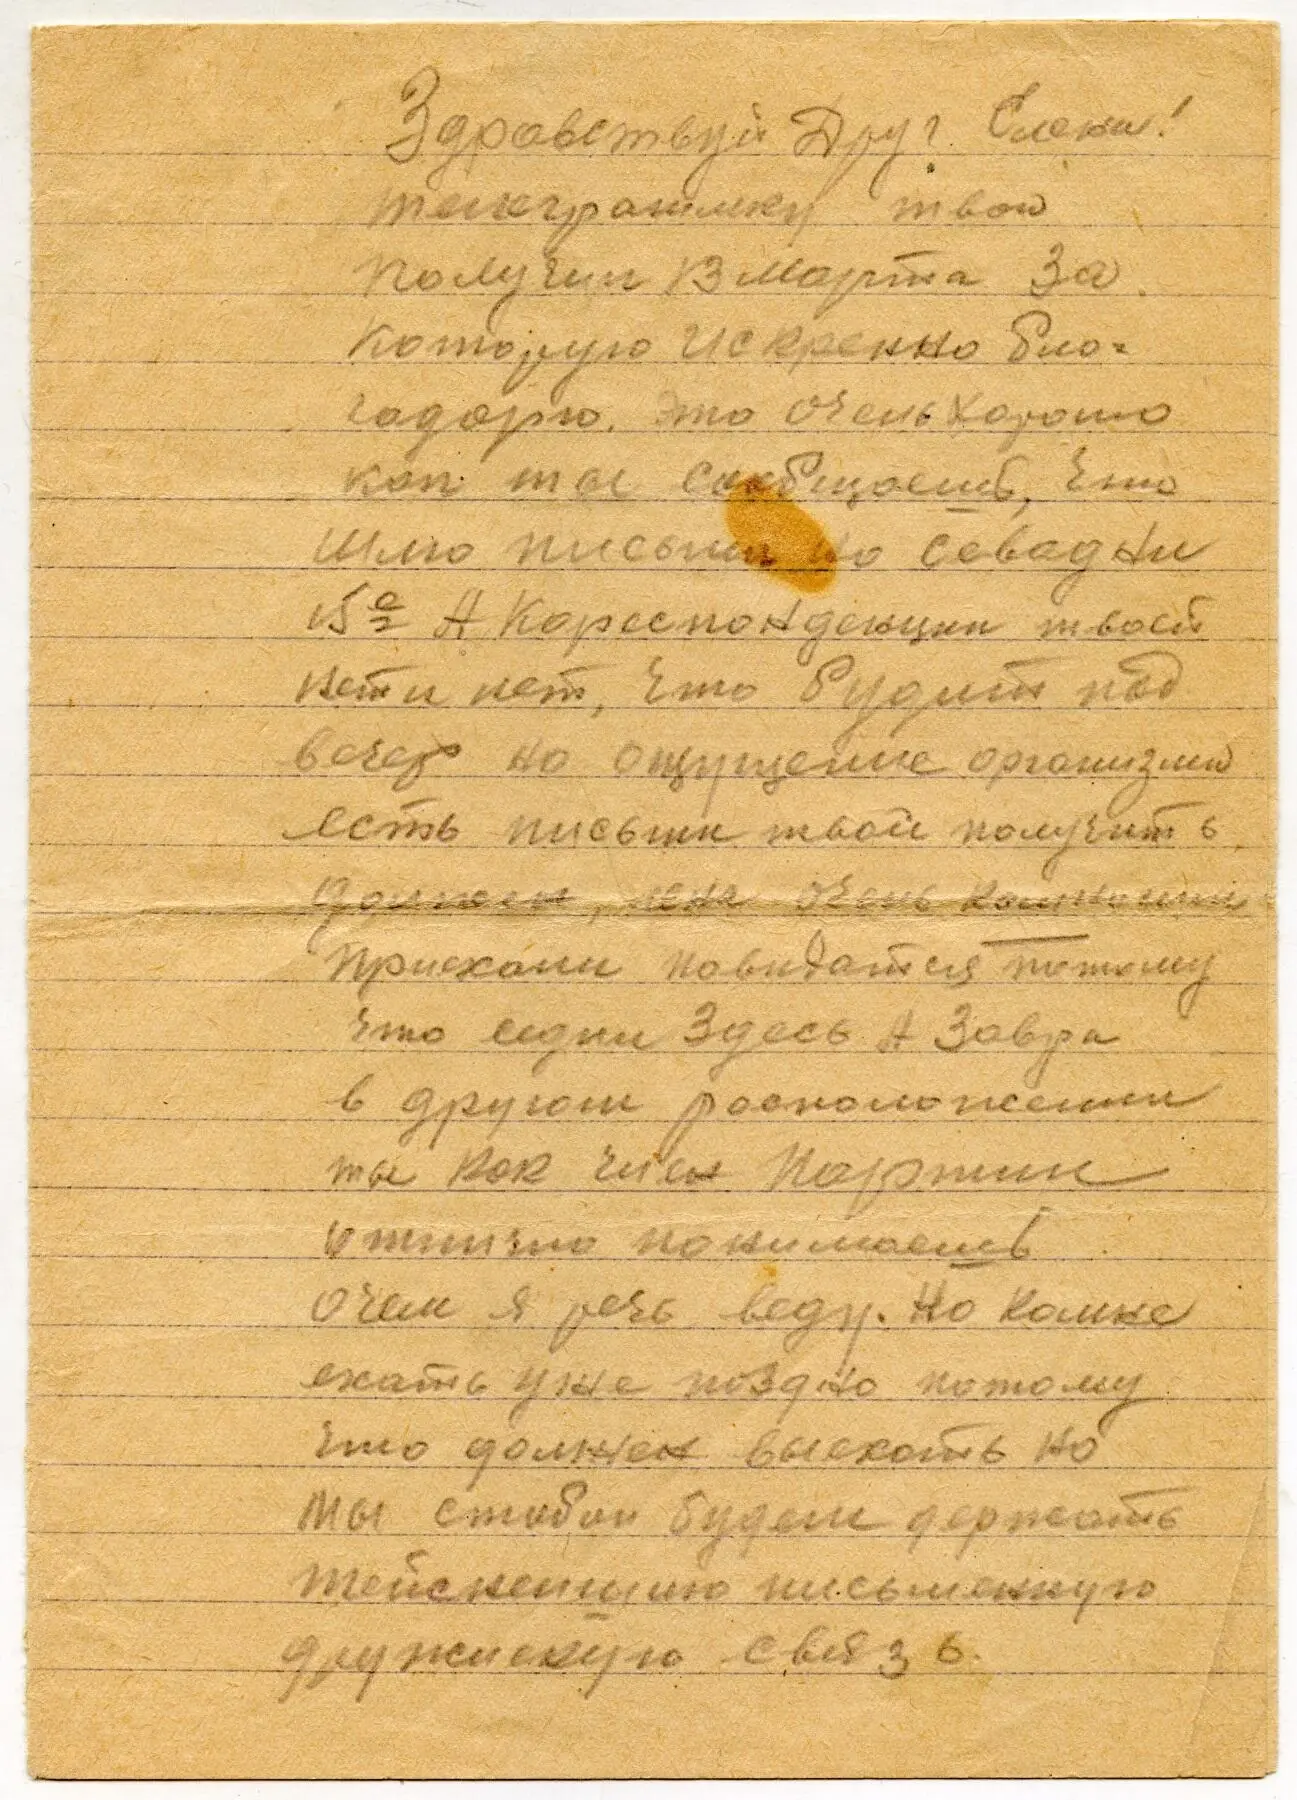 Здравствуй Друг Елена!
телеграмму твою
получил 13 марта За
которую искренно бла-
гадарю. это очень хорошо
как ты сообщаешь, что
шлю письма но севадни
15е А Кореспонденции твоей
нет и нет, что будит под
вечер но ощущение организма
есть письма твои получить
должен, лена очень
Приехали павидатся потому
что седни Здесь А Завра
в другом расположении
ты как член Партии
отлично понимаешь
очем я речь веду. Но комне
ехать уже поздно потому
что должен выехать но
мы стобой будем держать
письменную
дружескую связь.